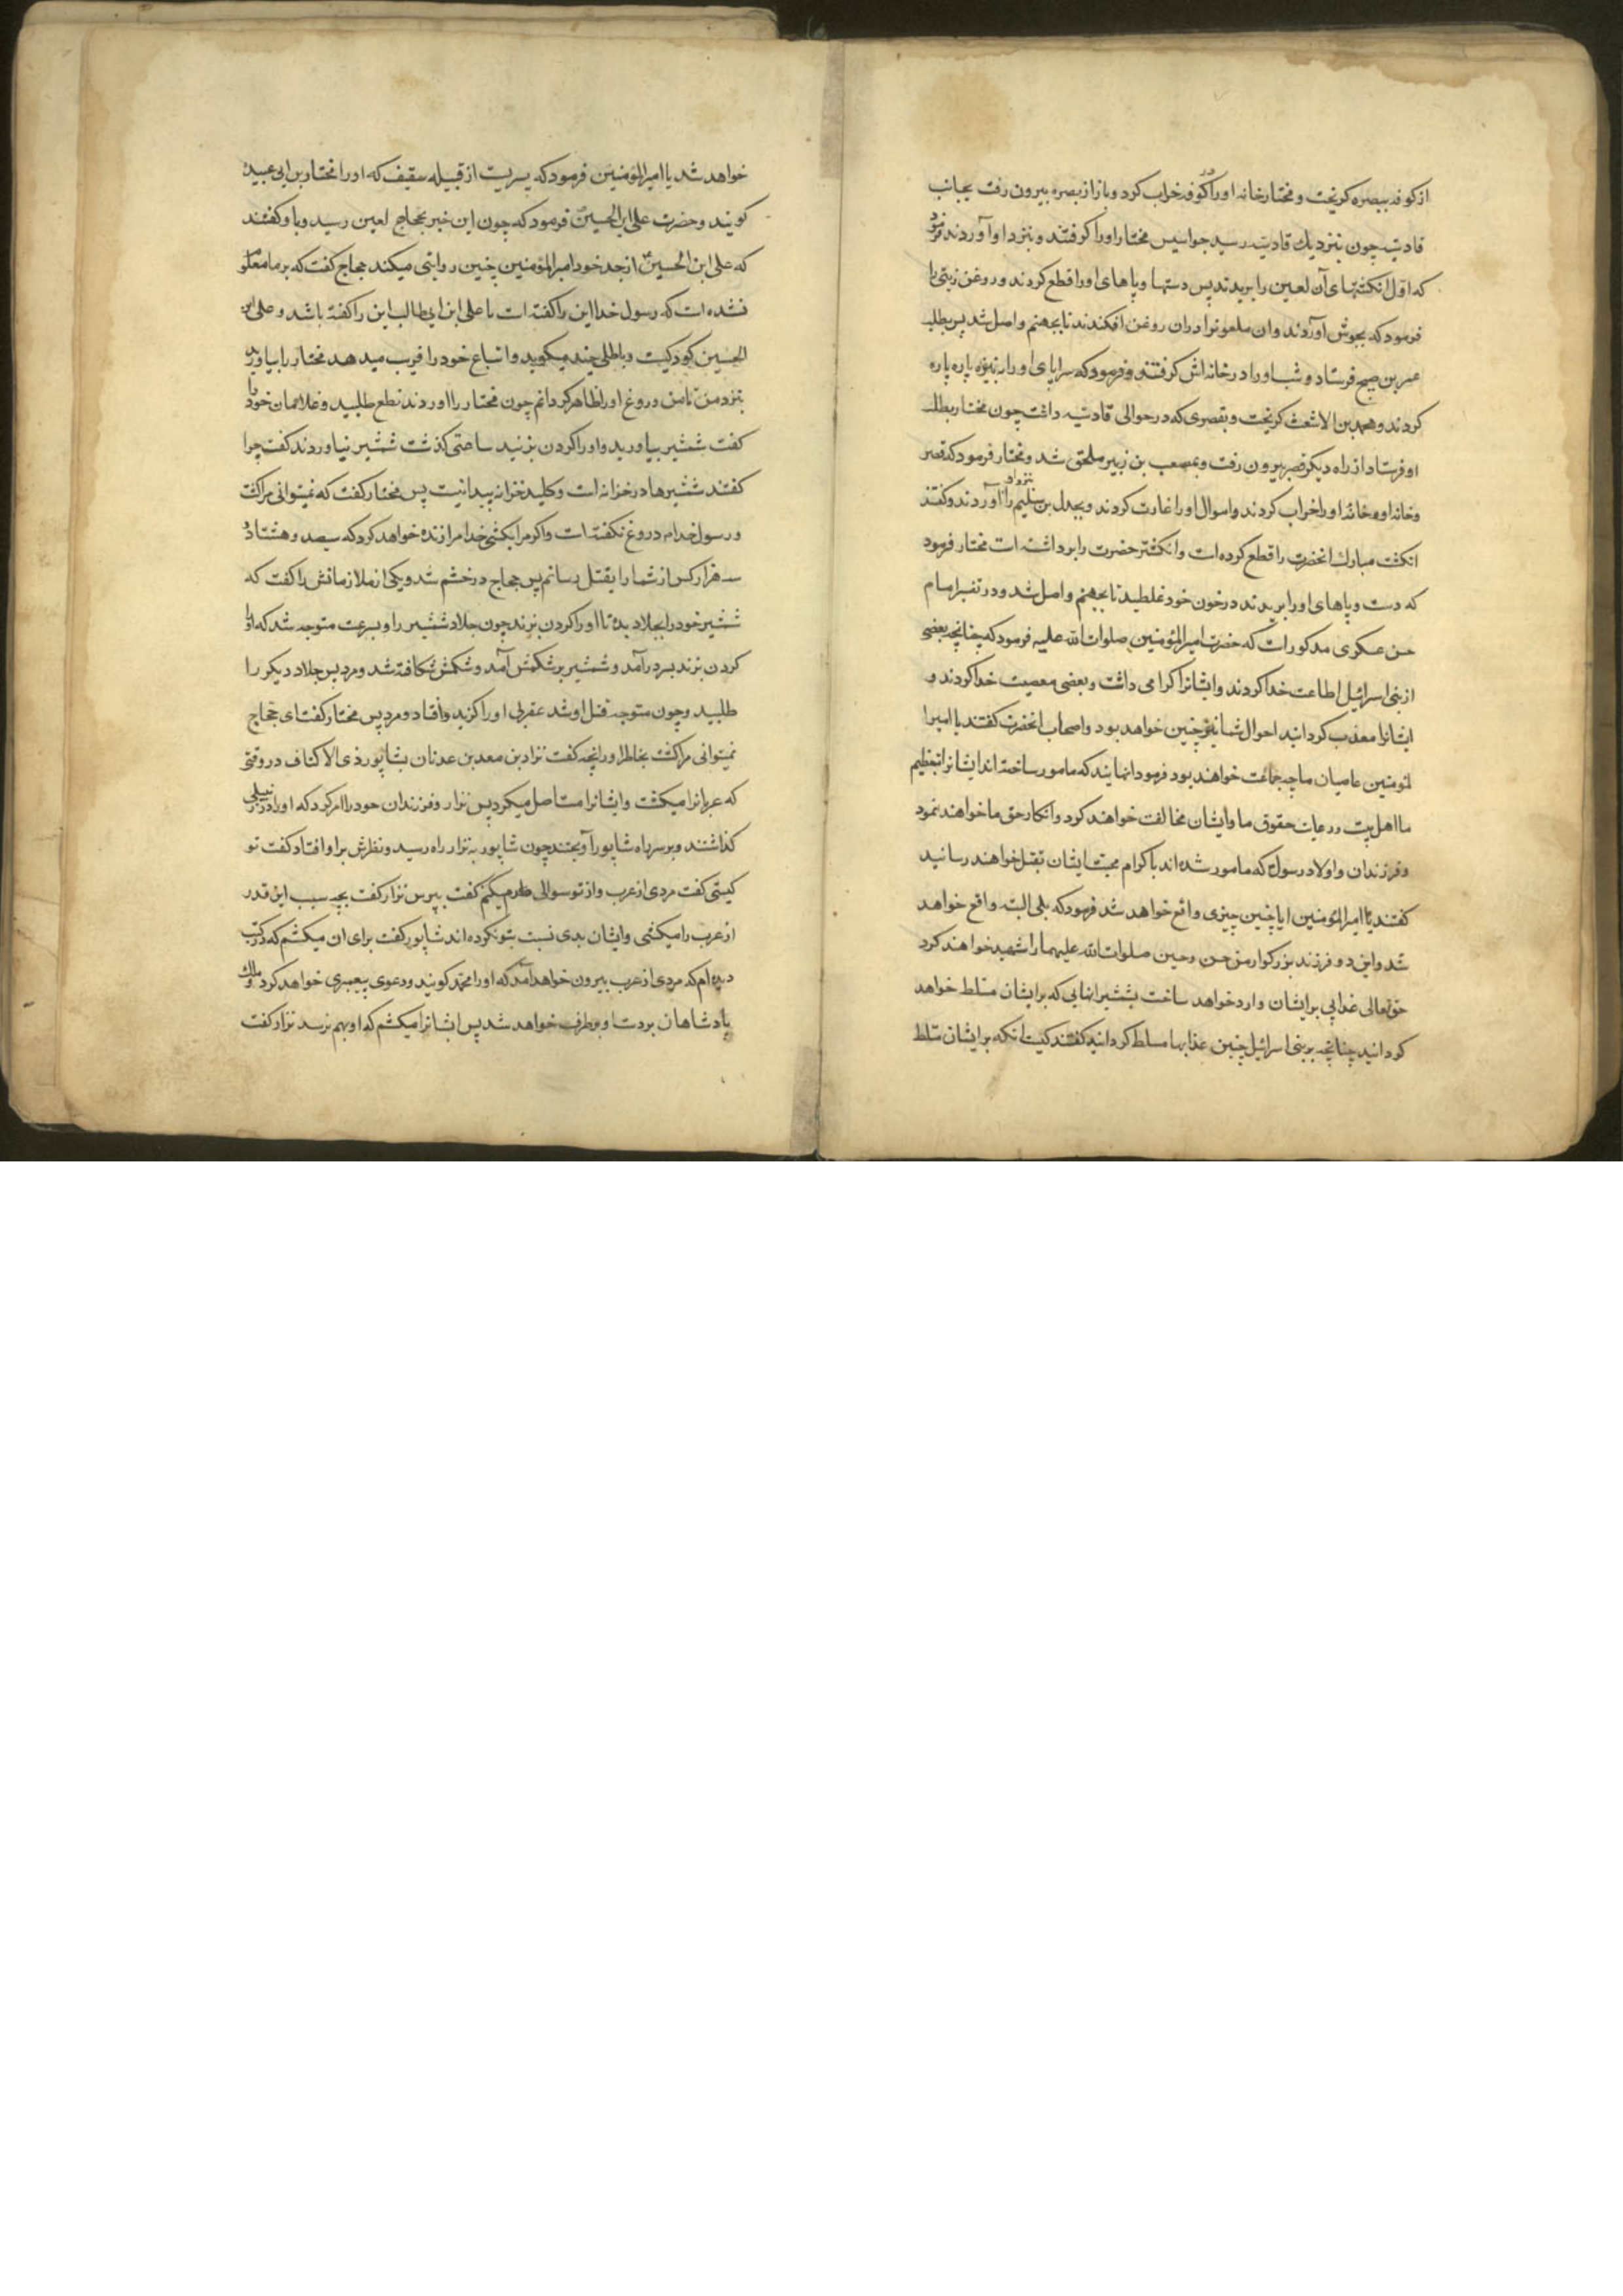 از کوفه ببصره کریخت و مختار خانه اورا در کوفه خراب کرد و باز از بصره بیرون رفت بجانب
قادسیه چون بنزدیك قادسیه رسید جواسیس مختار اورا کرفتند و بنزد او آوردند فرمود
که اول انکشتهای آن لعین را بریدند پس دستها و پاهای اورا قطع کردند و روغن زیتی را
فرمود که بجوش آوردند وان ملعونرا دران روغن افکندند تا بجهنم واصل شد پس بطلب
عمر بن صبیح فرستاد و شب اورا در خانه اش کرفتند و فرمود که سراپای اورا به نیزه پاره پاره
کردند و محمد بن الاشعث کریخت و بقصری که در حوالی قادسیه داشت چون مختار بطلب
او فرستاد از راه دیکر قصر بیرون رفت و بمصعب بن زبیر ملحق شد و مختار فرمود که قصر
و خانه او و خانه اورا خراب کردند و اموال اورا غارت کردند و بجدل بن سلیم را بنزد او آوردند و کفتند
انکشت مبارك انحضرت را قطع کرده است و انکشتر حضرت را برداشته است مختار فرمود
که دست و پاهای اورا بریدند در خون خود غلطید تا بجهنم واصل شد و در تفسیر امام
حسن عسکری مذکور است که حضرت امیرالمؤمنین صلوات الله علیه فرمود که چنانچه بعضی
از بنی اسرائیل اطاعت خدا کردند و ایشانرا کرامی داشت و بعضی معصیت خدا کردند و
ایشانرا معذب کردانید احوال شما نیز چنین خواهد بود و اصحاب انحضرت کفتند یا امیرا
لمؤمنین عاصیان ما چه جماعت خواهند بود فرمود انهایند که مامور ساخته اند ایشانرا بتعظیم
ما اهل بیت و رعایت حقوق ما و ایشان مخالفت خواهند کرد و انکار حق ما خواهند نمود
و فرزندان و اولاد رسول که مامور شده اند باکرام و محبت ایشان بقتل خواهند رسانید
کفتند یا امیرالمؤمنین ایا چنین چیزی واقع خواهد شد فرمود که بلی البته واقع خواهد
شد و این دو فرزند بزرکوار من حسن و حسین صلوات الله علیهما را شهید خواهند کرد
حق تعالی عذابی بر ایشان وارد خواهد ساخت بشمشیر انهایی که بر ایشان مسلط خواهد
کردانید چنانچه بر بنی اسرائیل چنین عذابها مسلط کردانید کفتند کیست انکه بر ایشان مسلط
خواهد شد یا امیرالمؤمنین فرمود که پسریست از قبیله سقیف که اورا مختار بن ابی عبیده
کویند و حضرت علی ابن الحسین فرمود که چون این خبر بحجاج لعین رسید و باو کفتند
که علی ابن الحسین از جد خود امیرالمؤمنین چنین روایتی میکند حجاج کفت که بر ما معلوم
نشده است که رسول خدا این را کفته است یا علی ابن ابی طالب این را کفته باشد و علی ابن
الحسین کودکیست و باطلی چند میکوید و اتباع خود را فریب میدهد مختار را بیاورید
بنزد من تا من دروغ اورا ظاهر کردانم چون مختار را اوردند نطع طلبید و غلامان خود را
کفت شمشیر بیاورید و اورا کردن بزنید ساعتی کذشت شمشیر نیاوردند کفت چرا
کفتند شمشیرها در خزانه است و کلید خزانه پیدا نیست پس مختار کفت که نمیتوانی مرا کشت
و رسول خدا دروغ نکفته است و اکر مرا بکشی خدا مرا زنده خواهد کرد که سیصد و هشتاد و
سه هزار کس از شما را بقتل رسانم پس حجاج در خشم شد و یکی از ملازمانش را کفت که
شمشیر خود را بجلاد بده تا اورا کردن بزند چون جلاد شمشیر را و بسرعت متوجه شد که اورا
کردن بزند بسر درآمد و شمشیر بر شکمش آمد و شکمش شکافته شد و مرد پس جلاد دیکر را
طلبید و چون متوجه قتل او شد عقربی اورا کزید و افتاد و مرد پس مختار کفت ای حجاج
نمیتوانی مرا کشت بخاطر اور انچه کفت نزار بن معد بن عدنان بشاپور ذی الاکتاف در وقتی
که عربانرا میکشت و ایشانرا مستاصل میکرد پس نزار و فرزندان خود را امر کرد که اورا در زنبیلی
کذاشتند و بر سر راه شاپور آویختند چون شاپور به نزار راه رسید و نظرش بر او افتاد کفت تو
کیستی کفت مردی از عرب و از تو سوالی میکنم کفت بپرس نزار کفت بچه سبب این قدر
از عرب را میکشی و ایشان بدی نسبت بتو نکرده اند شاپور کفت برای ان میکشم که در کتب
دیده ام که مردی از عرب بیرون خواهد آمد که اورا محمد کویند و دعوی پیغمبری خواهد کرد و ملك
پادشاهان بر دست او برطرف خواهد شد پس ایشانرا میکشم که او بهم نرسد نزار کفت